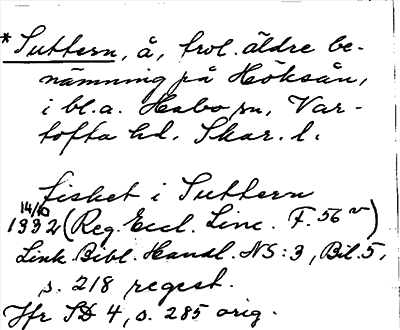 *Suttern, å, trol. äldre be-
nämning på Höksån,
i bl.a. Habo sn, Var-
tofta hd. Skar. l.
fisket i Suttern
14/10
1332 (Reg. Eccl. Linc. F. 56 v)
Link. Bibl. Handl. NS: 3, Bil. 5,
s. 218 regest.
Jfr SD 4, s. 285 orig.